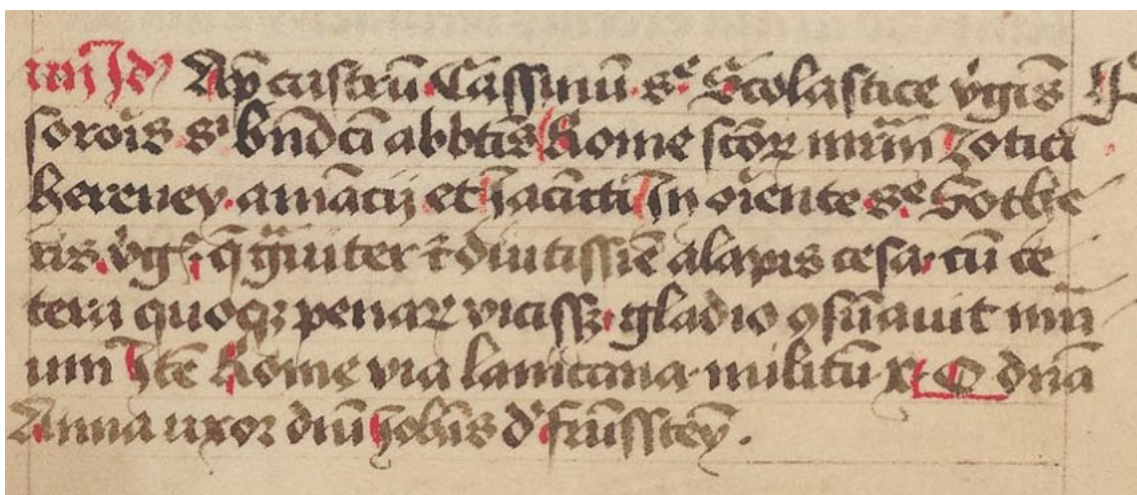 iiij Id Ap castrū Cassinū sͤ Scolastice v̓gīs
sorōis sͥ bn̄dc̄i abbt̄is Rome sc̄oꝝ mr̄m̄ Zotici
hereney amāciȷ et Jacincti In oriente sͤ Sothe
ris v̓g q̄ gͣuiter ⁊ diutissīe alapis cesa cū ce
tera quoqꝫ penaꝝ viciss gladio ꝯsūauit mr̄i
um Itē Rome via lauicana militū x C dn̄a
Anna uxor dn̄i Joh̄is d̓